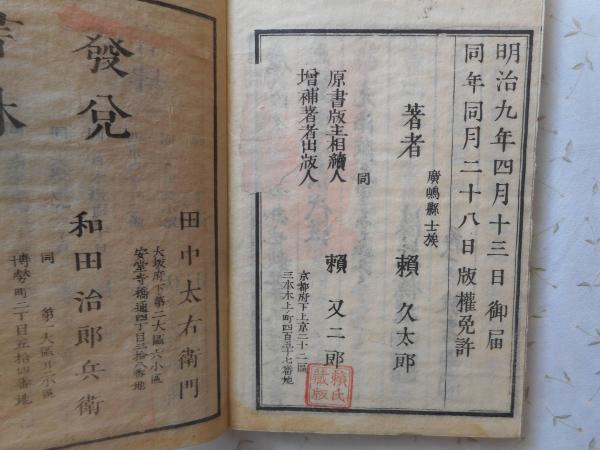 明治九年四月十三日御届
同年同月二十八日版權免許
廣嶋縣士族
著者 賴久太郎
同
原書版主相續人
增補著者出版人
賴又二郎
京都府下上京二十二區
三本木上ノ町四百五十七番地
賴氏藏版
田中太右衛門
大坂府下第二大區六小區
安堂寺橋通四丁目三拾八番地
發兌
和田治郎兵衛
同 第一大區廿六小區
博勞町二丁目五拾四番地
書林